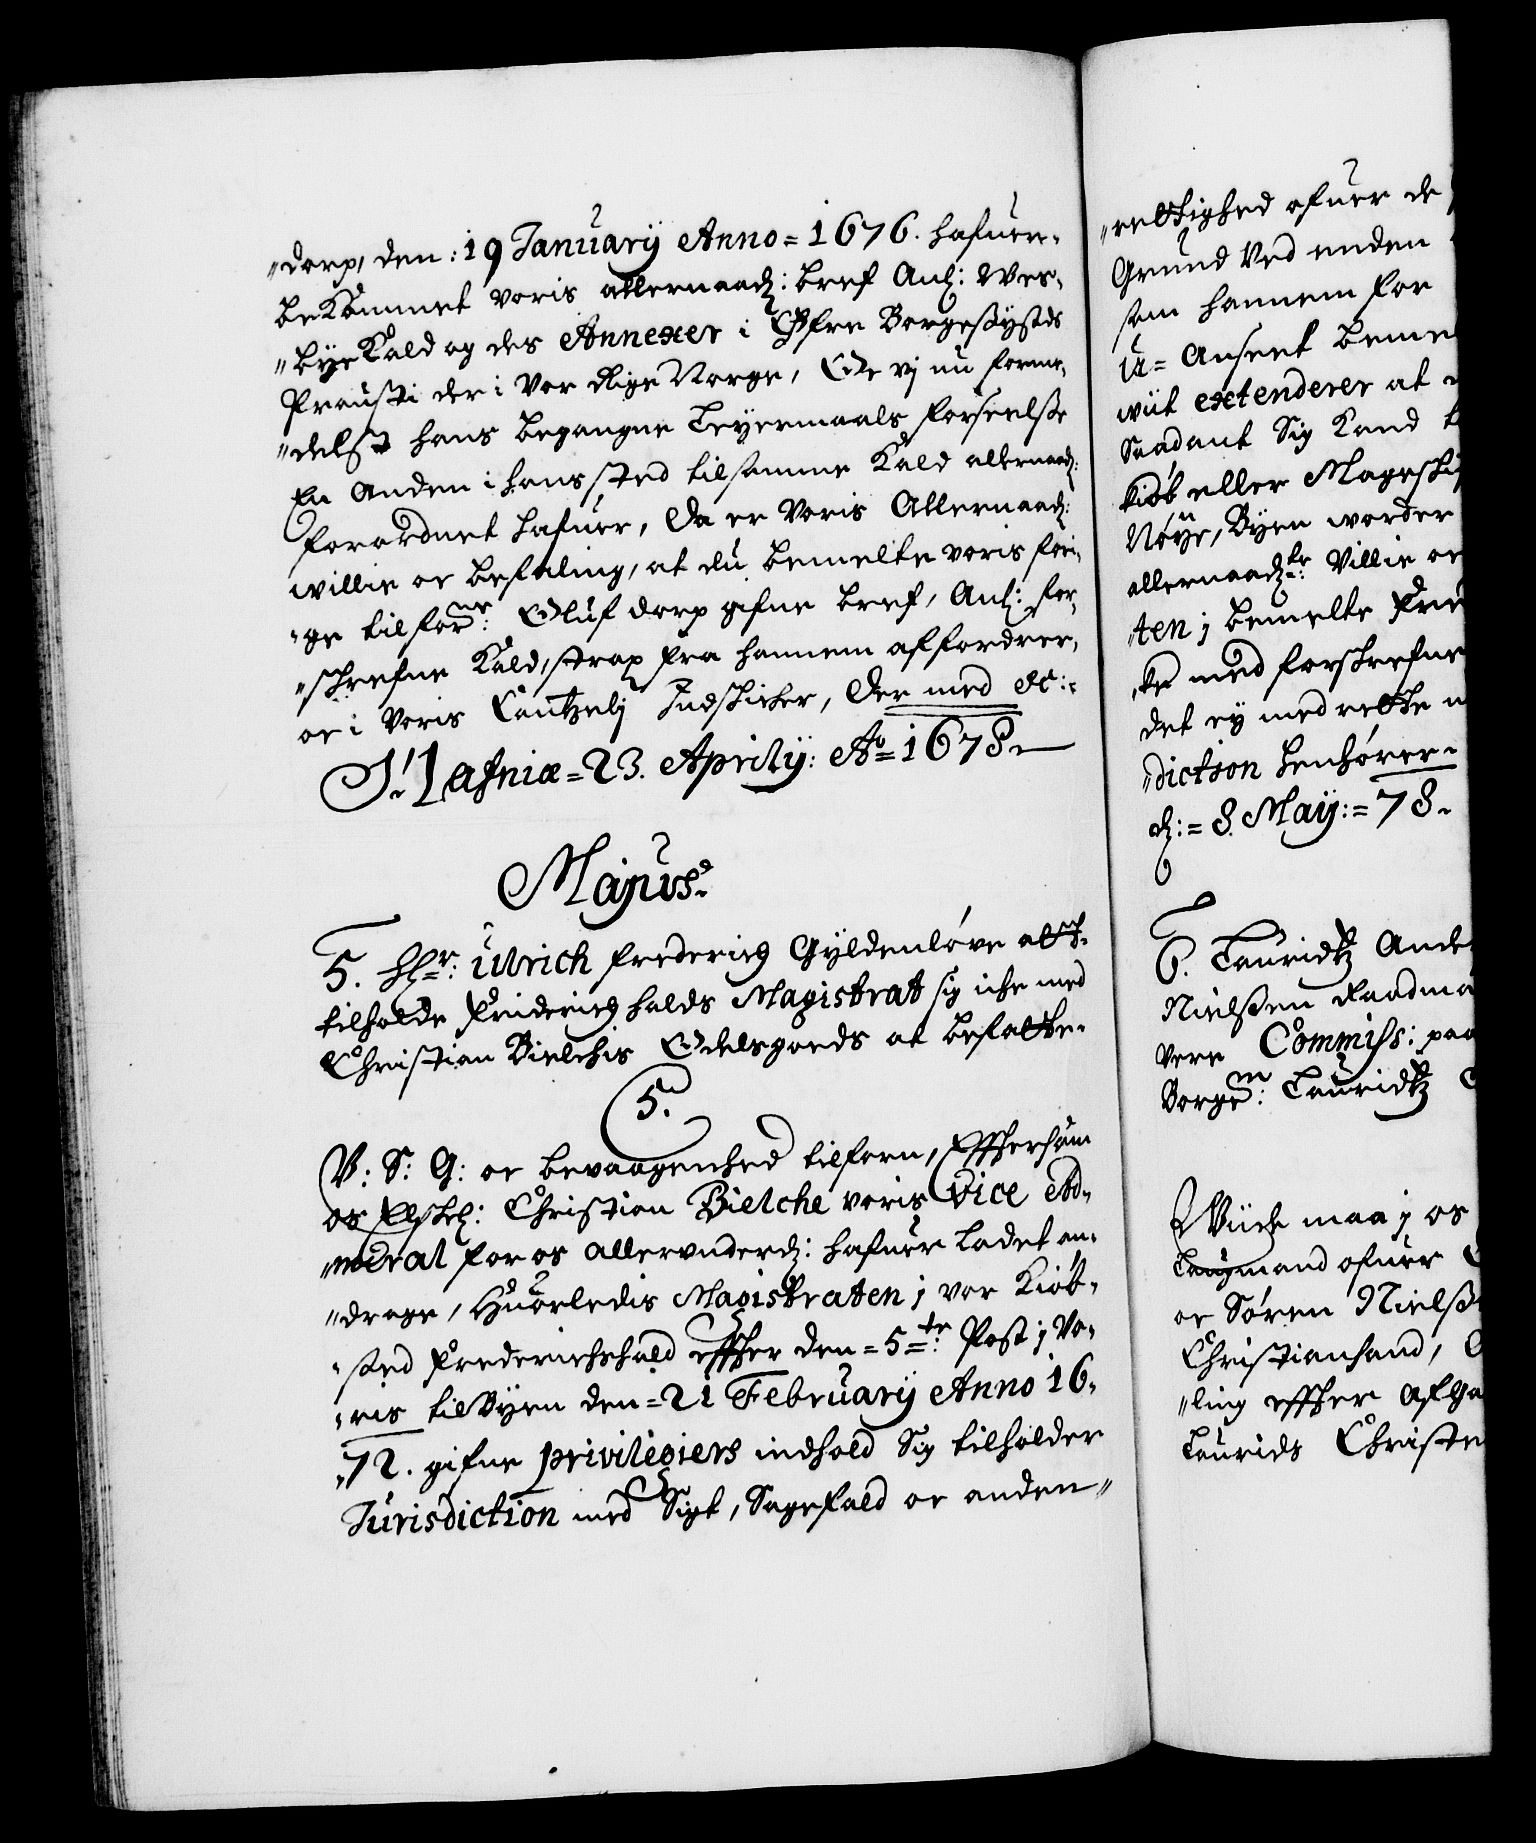 "dorp, den: 19 January Anno = 1676. hafuer-
bekommet voris allernaad: bref Anl: Wes-
"bÿe Kald og des Annexer i Øfre Borgesÿssels
Prousti der i vor Rige Norge, Efter vj nu forme-
"delst hans begangne Leyermaals forseelse
En Anden i hans sted til samme Kald allernaad:
forordnet hafuer, Da er voris Allernaad:
willie oc befaling, at du bemelte voris fori-
"ge tilforne: Oluf dorp gifne bref, Anl: for-
"schrefne Kald, strax fra hannem affordrer,
oc i voris Cantzelij Indschicher, Der med etc:
I! Hafniæ = 23. Aprilÿ: Ao = 1678.
Majus.
5. Hr: Ulrich frederich Gÿldenløve att
tilholde friderichhalds Magistrat sig iche med
Christian Bielchis Odelsgoeds at befatte.
5.
V: S: G: oc bevaagenhed tilforn, Effthersom
os Elschel: Christian Bielche voris Vice Ad-
"miral for os allervnderd: hafuer ladet an-
"drage, Huorledis Magistraten j vor Kiøb-
"sted frederichshald effther den = 5te: Post j Vo-
"ris til Byen den = 21 February Anno 16-
"72. gifne privilegiers indhold Sig tilholder
Jurisdiction med Sigt, Sagefald oc anden"
"rettighed ofuer de
Grund Ved enden
som hannem for
u= Anseet beme
wiit extenderer at
Saadant Sig Kand
Kiøb eller Mageschi
Nøÿe, Byen worder
allernaadte: Villie oc
"ten j bemelte fri
"te med forschrefne
det ey med rette
"diction henhører.
d: = 8. Maÿ: = 78.
6. Lauridtz Ande
Nielsen Raadma
vere Commiss: paa
Borgem: Lauridtz
Wiide maa j os
Laugmand ofuer
oc Søren Niels
Christiansand,
"ling effther afga
Laurids Christe